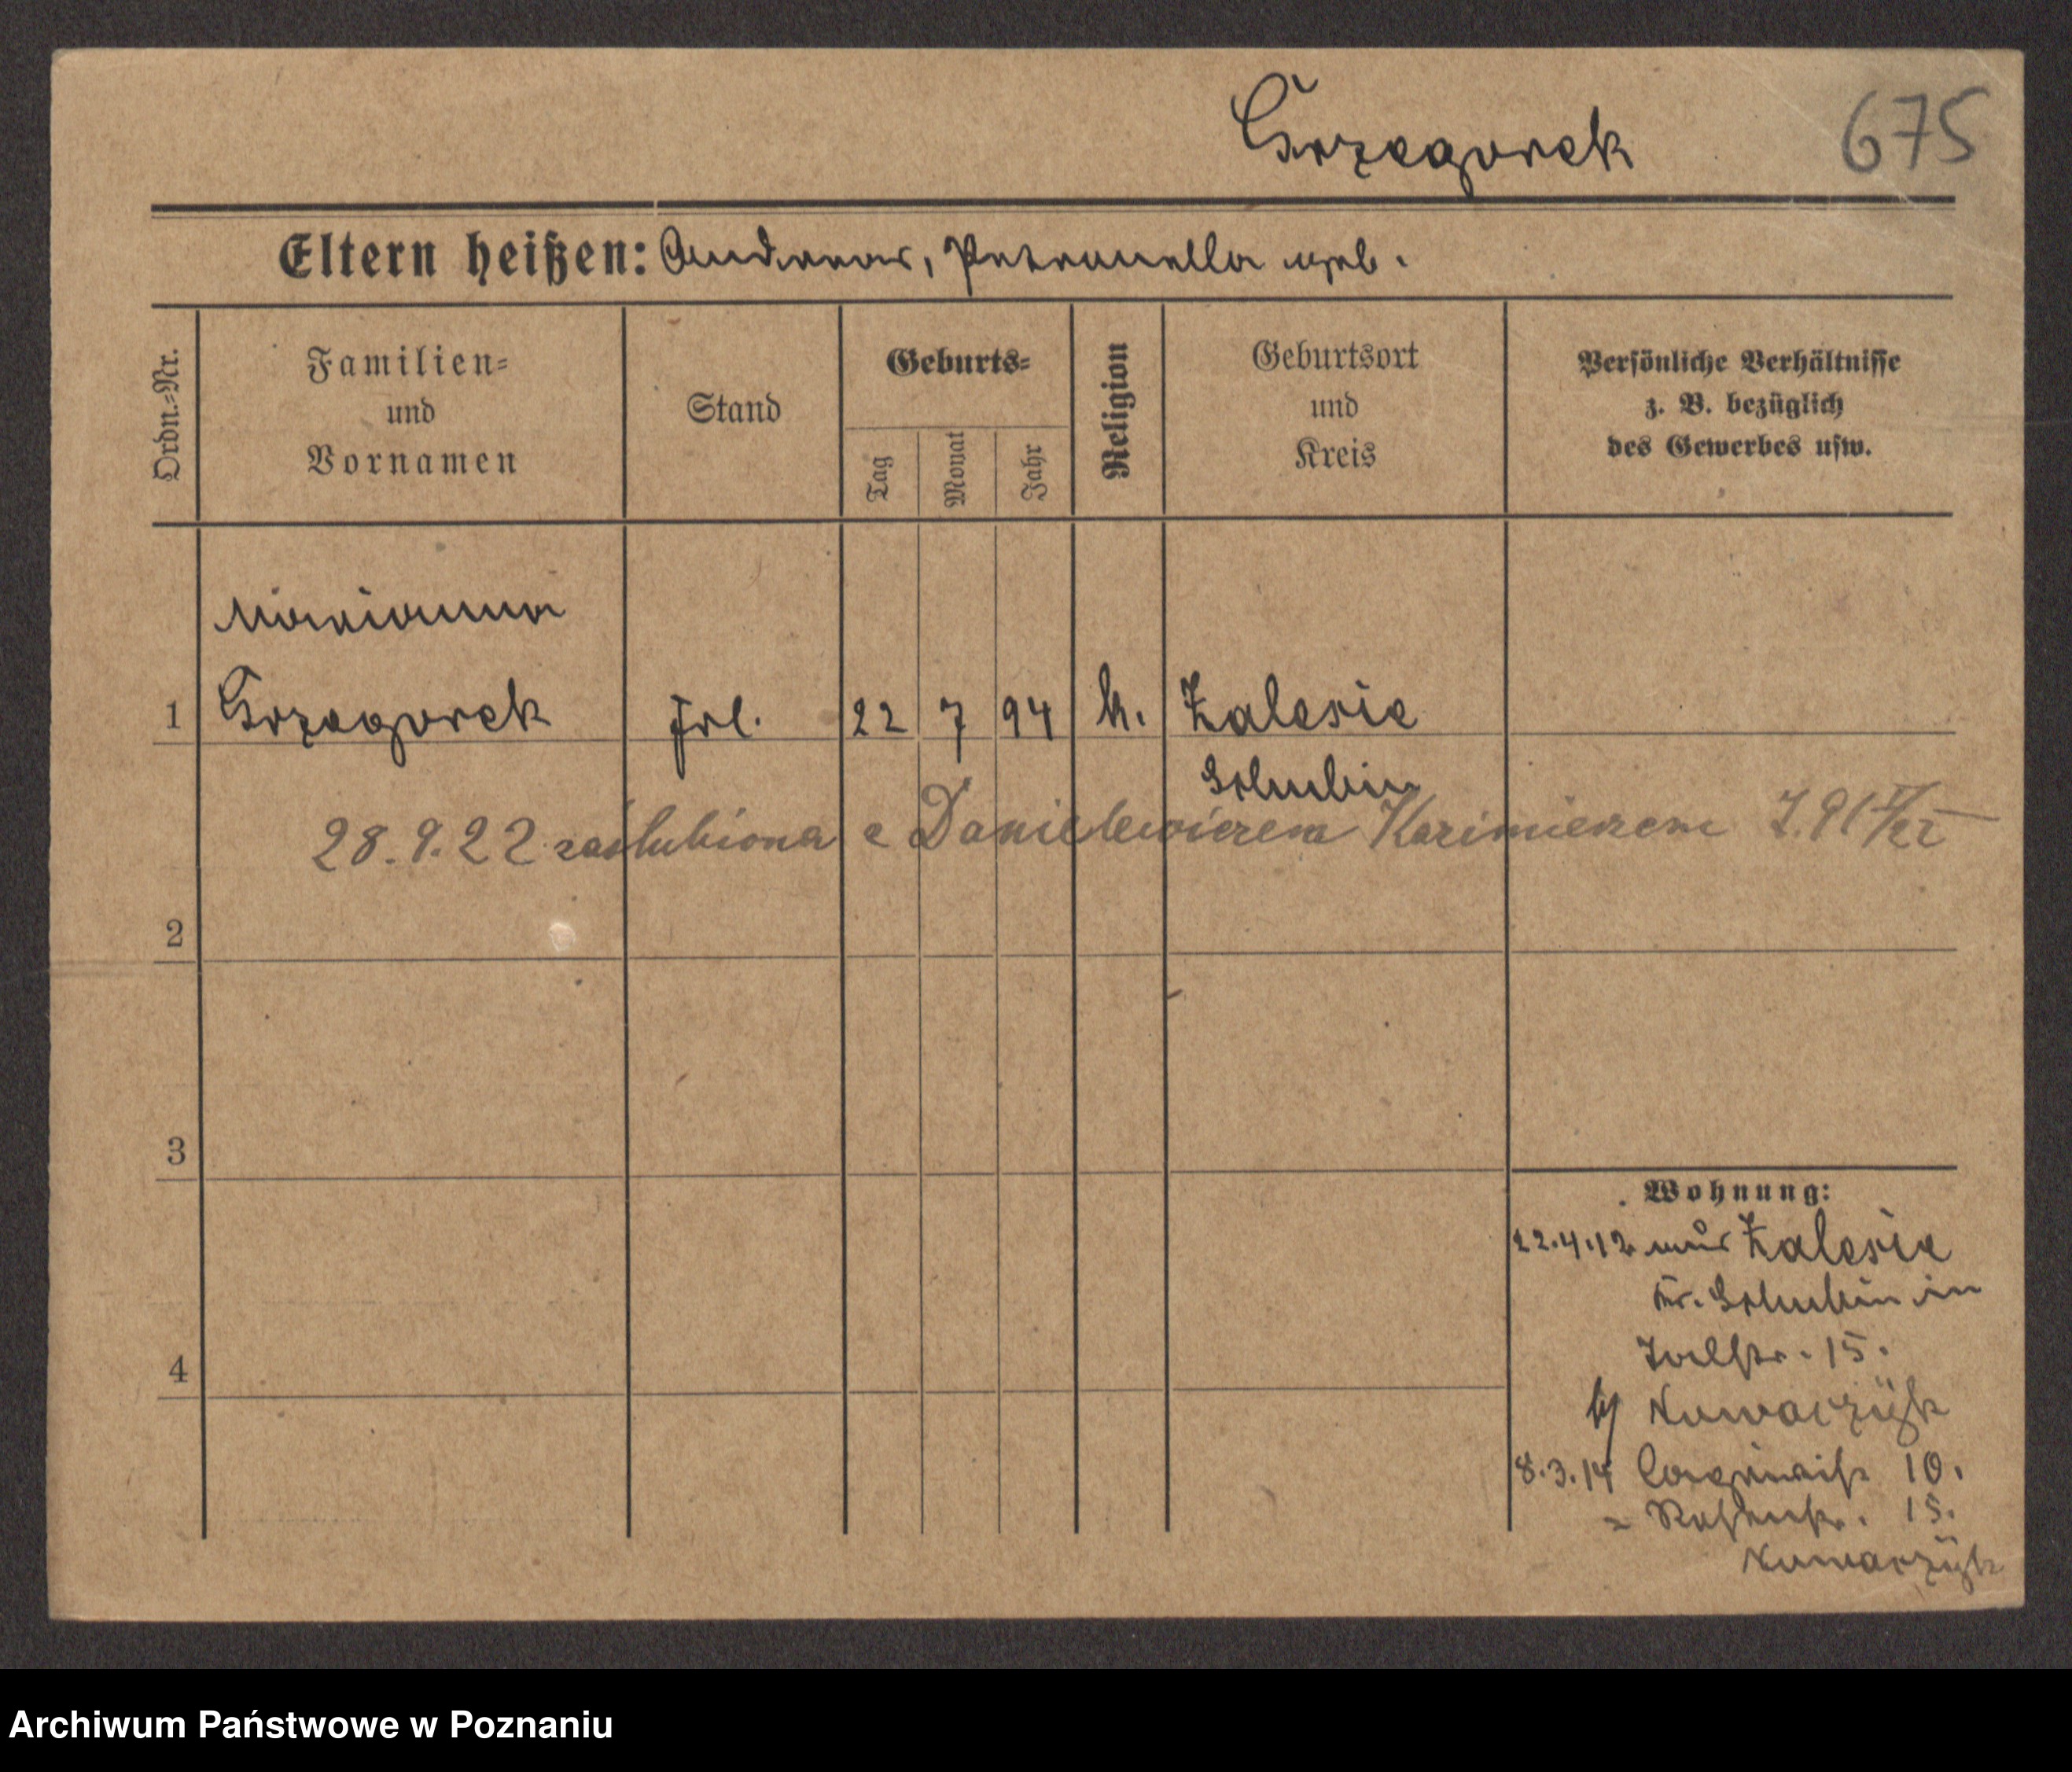 Grzegorek 675
Eltern heißen: Andreas, Petronella geb.
Ordn.-Nr.
Familien-
und
Vornamen
Stand
Geburts-
Tag
Monat
Jahr
Religion
Geburtsort
und
Kreis
Persönliche Verhältnisse
z. B. bezüglich
des Gewerbes usw.
Marianna
1 Grzegorek Frl. 22 7 94 k. Zalesie
Schubin
28.9.22 zaślubiona z Danielewiczem Kazimierzem
2
3
4
Wohnung:
22.4.12 aus Zalesie
Kr. Schubin in
15.
by Nowaczyk
8.3.14 10.
15.
Nowaczyk
Archiwum Państwowe w Poznaniu